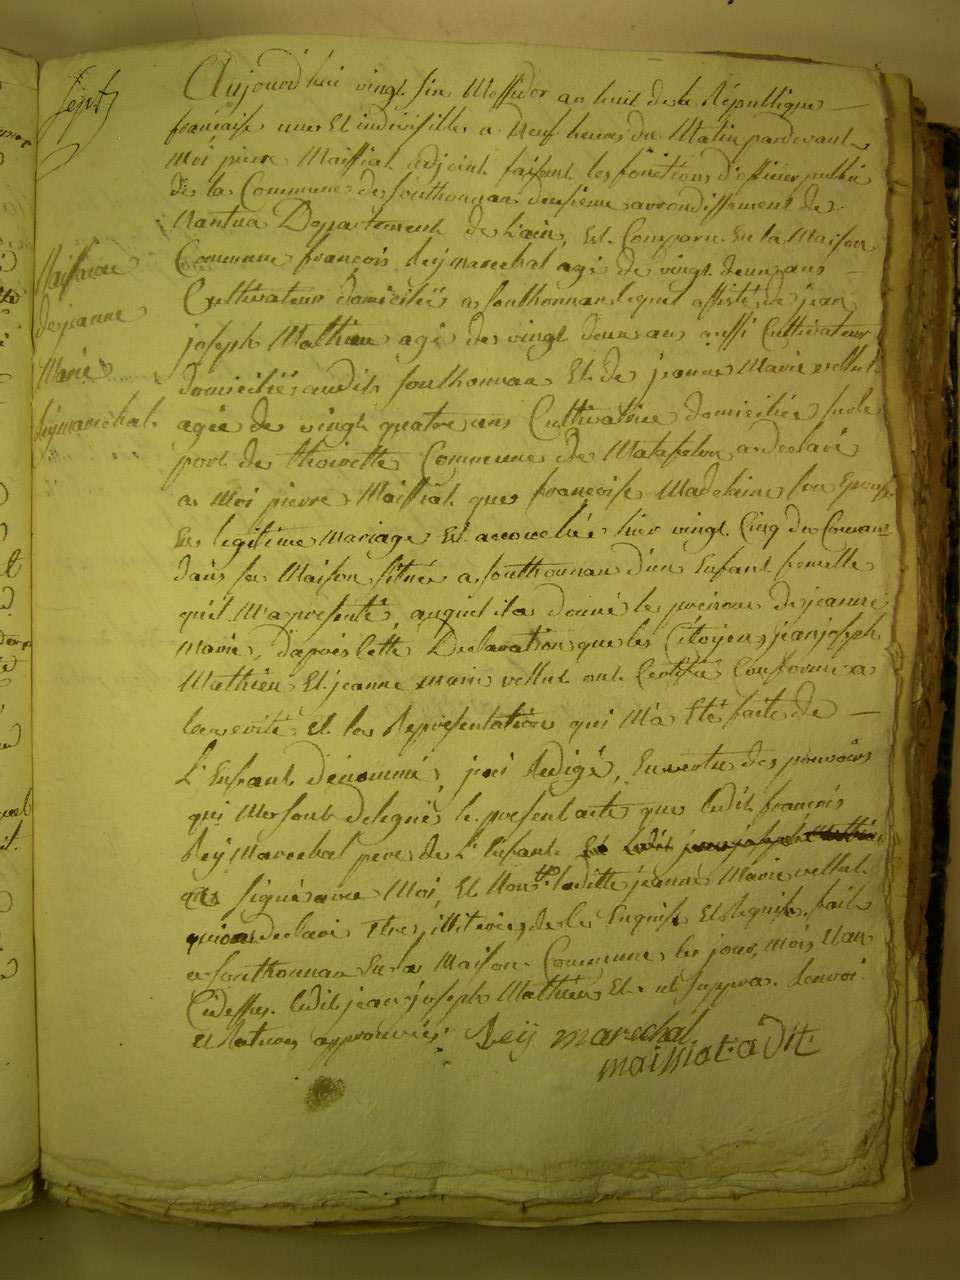 Sept
Aujourd'hui vingt six Messidor an huit de la République
française une Et indivisible a Neuf heures du Matin pardevant
Moi pierre Maissiat adjoint faisant les fonctions d'officier public
de la Commune de Songthonnax deusieme arrondissement de
Nantua Departement de L'ain, Est Comparu En la Maison
Commune françois Reij marechal agé de vingt deux ans
Cultivateur domicilié a Southonnax lequel assisté de jean
joseph Mathieu agé de vingt deux ans aussi Cultivateur
domicilié audit Southonnax Et de jeanne Marie vellut
agée de vingt quatre ans Cultivatrice domiciliée sur le
port de thoirette Commune de Matafelon a declaré
a Moi pierre Maissiat que françoise Madeleine son Epouse
En legitime Mariage Est accouchée hier vingt Cinq du Courant
dans sa Maison située a Southonnax d'un Enfant femelle
qu'il M'a presenté, auquel il a donné le prenom de jeanne
Marie, d'après Cette Declaration que les Citoyens jean joseph
Mathieu Et jeanne marie vellut ont Certifié Conforme a
la verité Et la Representation qui M'a Eté faite de
L'Enfant dénommé, j'ai Redigé, En vertu des pouvoirs
qui Me sont delegués le present acte que ledit françois
Reij Marechal pere de L'Enfant Et ledit jean joseph Mathieu
ont signé avec Moi, Et Non ladite jeanne Marie vellut
qui a declaré Etre illiterée de les Enquise Et Requise, fait
a Southonnax En la Maison Commune les jour, Mois Et an
Cidessus. ledit jean joseph Mathieu Et ut suppra. Renvoi
Et Ratures approuvés.
Reij marechal
maissiat adjt.
Naissance
de jeanne
Marie
Reij marechal.